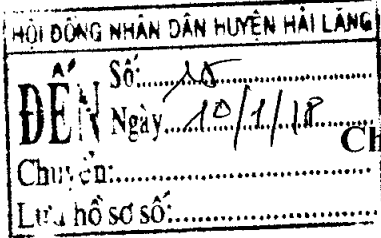 HỘI ĐỒNG NHÂN DÂN HUYỆN HẢI LĂNG
ĐẾN
Số: 15
Ngày 10/1/18
Chuyển:
Lưu hồ sơ số:
Ch